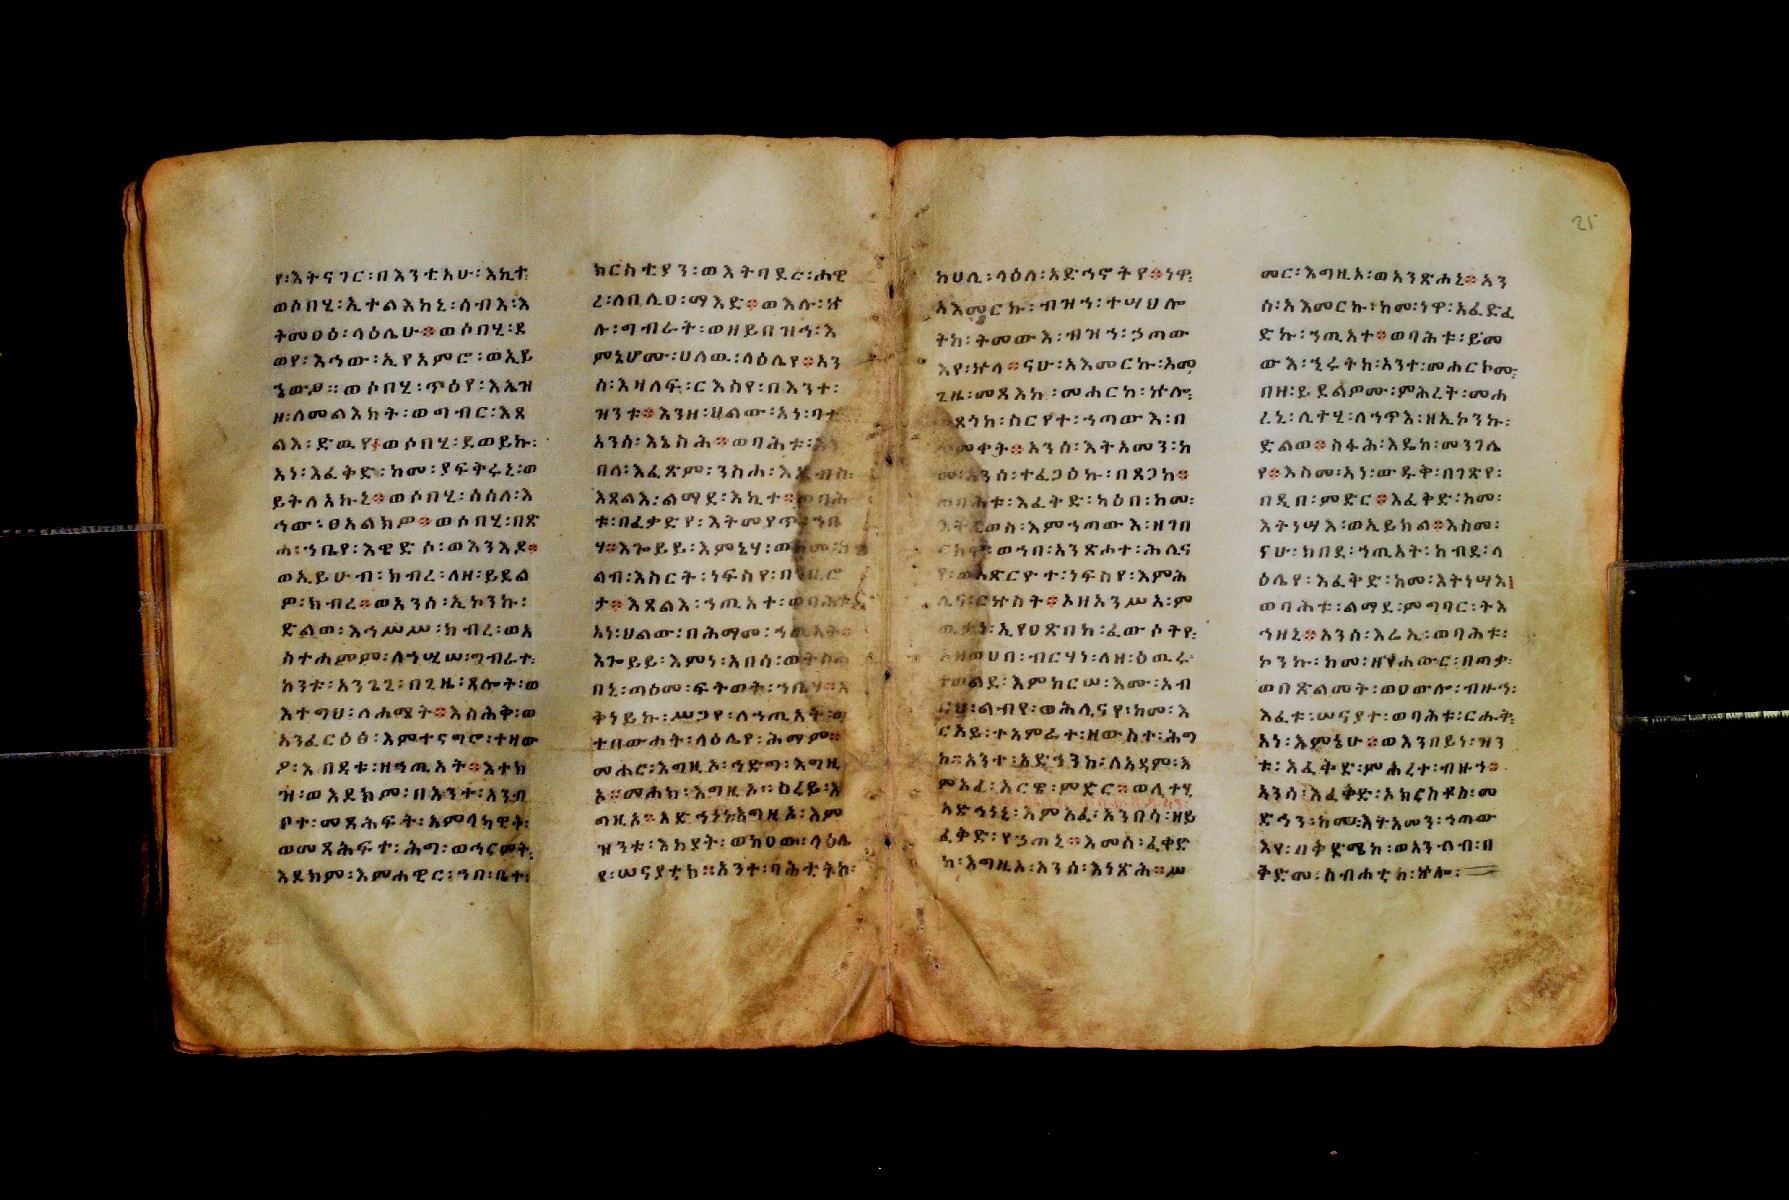 የ፡እትናገር፡በእንተአሁ፡እኪተ፡
ወሶበሂ፡ኢተልእከኒ፡ሰብእ፡እ
ትመዐዕ፡ላዕሌሁ፨ወሶበሂ፡ደ
ወየ፡እኅው፡ኢየአምሮ፡ወኢይ
ኄውጾ፡፡ወሶበሂ፡ጥዕየ፡እኤዝ
ዘ፡ለመልእክት፡ወግብር፡እጸ
ልእ፡ድዉየ፡ወሶበሂ፡ደወይኩ፡
አነ፡እፈቅድ፡ከመ፡ያፍቅሩኒ፡ወ
ይትለአኩኒ፨ወሶበሂ፡ሰሰለ፡እ
ኅው፡ፀአልክዎ፨ወሶበሂ፡በጽ
ሐ፡ኀቤየ፡እዌድሶ፡ወእንእዶ፨
ወኢይሁብ፡ክብረ፡ለዘ፡ይደል
ዎ፡ክብረ፨ወአንሰ፡ኢኮንኩ፡
ድልወ፡እኅሥሥ፡ክብረ፡ወአ
ስተሐምም፡ለኀሢሠ፡ግብራተ፡
ከንቱ፡አንጌጊ፡በጊዜ፡ጸሎት፡ወ
እተግህ፡ለሐሜት፨እስሕቅ፡ወ
አንፈርዕፅ፡እምተናግሮ፡ተዛው
ዖ፡እበዳቱ፡ዘኀጢአት፨እተክ
ዝ፡ወእደክም፡በእንተ፡አንብ
ቦተ፡መጸሕፍት፡አምላካዊት፡
ወመጸሕፍተ፡ሕግ፡ወኅርመት፡
እደክም፡እምሐዊር፡ኀበ፡ቤተ፡
ክርስቲያን፡ወእትባደሮ፡ሐዊ
ረ፡ለቢሲዐ፡ማእድ፨ወእሉ፡ኵ
ሉ፡ግብራት፡ወዘይበዝኅ፡እ
ምኔሆሙ፡ሀለዉ፡ላዕሌየ፨አን
ሰ፡እዛለፍ፡ርእስየ፡በእንተ፡
ዝንቱ፨እንዘ፡ሀልው፡አነ፡ባተ
አንሰ፡እኔስሕ፨ወባሕቱ፡
በለ፡እፈጽም፡ንስሐ፡
እጸልእ፡ልማደ፡እኪተ፨ወባሕ
ቱ፡በፈቃድየ፡እትመያጥ፡ኀቤ
ሃ፨እጐይይ፡እምኔሃ፡
ልብ፡እስርት፡ነፍስየ፡
ታ፨እጸልእ፡ኀጢአተ፡ወባሕቱ
አነ፡ሀልው፡በሕማመ፡ኀጢአት፨
እጐይይ፡እምነ፡አበሳ፡
በኒ፡ጣዕመ፡ፍትወት፡ኀቤሃ፨አ
ቅነይኩ፡ሥጋየ፡ለኀጢአት፡ወ
ተበውሐት፡ላዕሌየ፡ሕማም፨
መሐሮ፡እግዚኦ፡ኅድግ፡እግዚ
ኦ፨መሐክ፡እግዚኦ፡፡ስረይ፡እ
ግዚኦ፨አድኅነነ፡እግዚኦ፡እም
ዝንቱ፡እከያት፡ወክዐው፡ላዕሌ
የ፡ሠናያቲከ፨አንተ፡ባሕቲትከ፡
ከሀሊ፡ላዕለ፡አድኅኖትየ፨ነዋ፡
አእመርኩ፡ብዝኀ፡ተሣህሎ
ትከ፡ትመውእ፡ብዝኀ፡ኃጣው
እየ፡ኵላ፨ናሁ፡አእመርኩ፡አመ
ጊዜ፡መጻእከ፡መሐርከ፡ኵሎ፡
ጸጎከ፡ስርየተ፡ኀጣውእ፡በ
ጥምቀት፨አንሰ፡እትአመን፡ከ
መ፡አንሰ፡ተፈጋዕኩ፡በጸጋከ፨
ወባሕቱ፡እፈቅድ፡ካዕበ፡ከመ፡
እትፈወስ፡እምኀጣውእ፡ዘገበ
ርክዎ፡ወኀበ፡አንጽሖተ፡ሕሊና
የ፡ወአጽርዮተ፡ነፍስየ፡እምሕ
ሊና፡ርኵስት፨ኦዘአንሥአ፡ም
ዉታነ፡ኢየዐጽበከ፡ፈውሶትየ፡
ኦዘወሀበ፡ብርሃነ፡ለዘ፡ዕዉሩ፡
ተወልደ፡እምከርሠ፡እሙ፡አብ
ርህ፡ልብየ፡ወሕሊናየ፡ከመ፡እ
ርአይ፡ተአምራተ፡ዘውስተ፡ሕግ
ከ፨አንተ፡አድኀንከ፡ለአዳም፡እ
ምአፈ፡አርዌ፡ምድር፨ወሊተሂ
አድኅነኒ፡እምአፈ፡አንበሳ፡ዘይ
ፈቅድ፡የኃጠኒ፨እመሰ፡ፈቀድ
ከ፡እግዚኦ፡አንሰ፡እነጽሕ፨ሥ
መር፡እግዚኦ፡ወአንጽሐኒ፨አን
ሰ፡አእመርኩ፡ከመ፡ነዋ፡አፈድፈ
ድኩ፡ኀጢአተ፨ወባሕቱ፡ይመ
ውእ፡ኂሩትከ፡አንተ፡መሐርኮሙ፡
በዘ፡ይደልዎሙ፡ምሕረት፡መሐ
ረኒ፡ሊተሂ፡ለኀጥእ፡ዘኢኮንኩ፡
ድልወ፨ስፋሕ፡እዴከ፡መንገሌ
የ፨እስመ፡አነ፡ውዱቅ፡በገጽየ፡
በዲበ፡ምድር፨እፈቅድ፡ከመ፡
እትነሣእ፡ወኢይክል፨እስመ፡
ናሁ፡ከበደ፡ኀጢአት፡ክብደ፡ላ
ዕሌየ፡እፈቅድ፡ከመ፡እትነሣእ፡
ወባሕቱ፡ልማደ፡ምግባር፡ትእ
ኅዘኒ፨አንሰ፡እሬኢ፡ወባሕቱ፡
ኮንኩ፡ከመ፡ዘየሐውር፡በጣቃ፡
ወበጽልመት፡ወዐውሎ፡ብዙኀ፡
እፈቱ፡ሠናያተ፡ወባሕቱ፡ርሑቅ፡
አነ፡እምኔሁ፨ወእንበይነ፡ዝን
ቱ፡እፈቅድ፡ምሕረተ፡ብዙኀ፨
አንሰ፡እፈቅድ፡ኦክርስቶስ፡መ
ድኀን፡ከመ፡እትአመን፡ኀጣው
እየ፡በቅድሜከ፡ወአንብብ፡በ
ቅድመ፡ስብሐቲከ፡ኵሎ፡
25